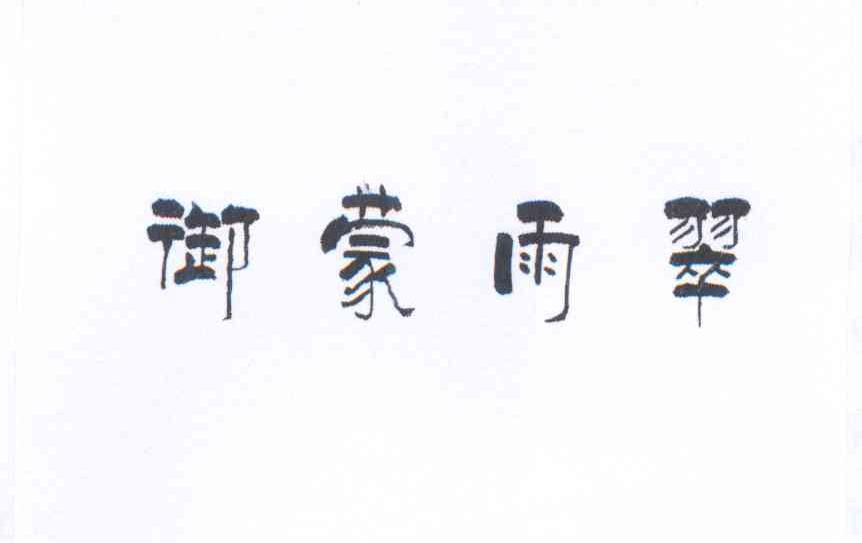 御蒙雨翠